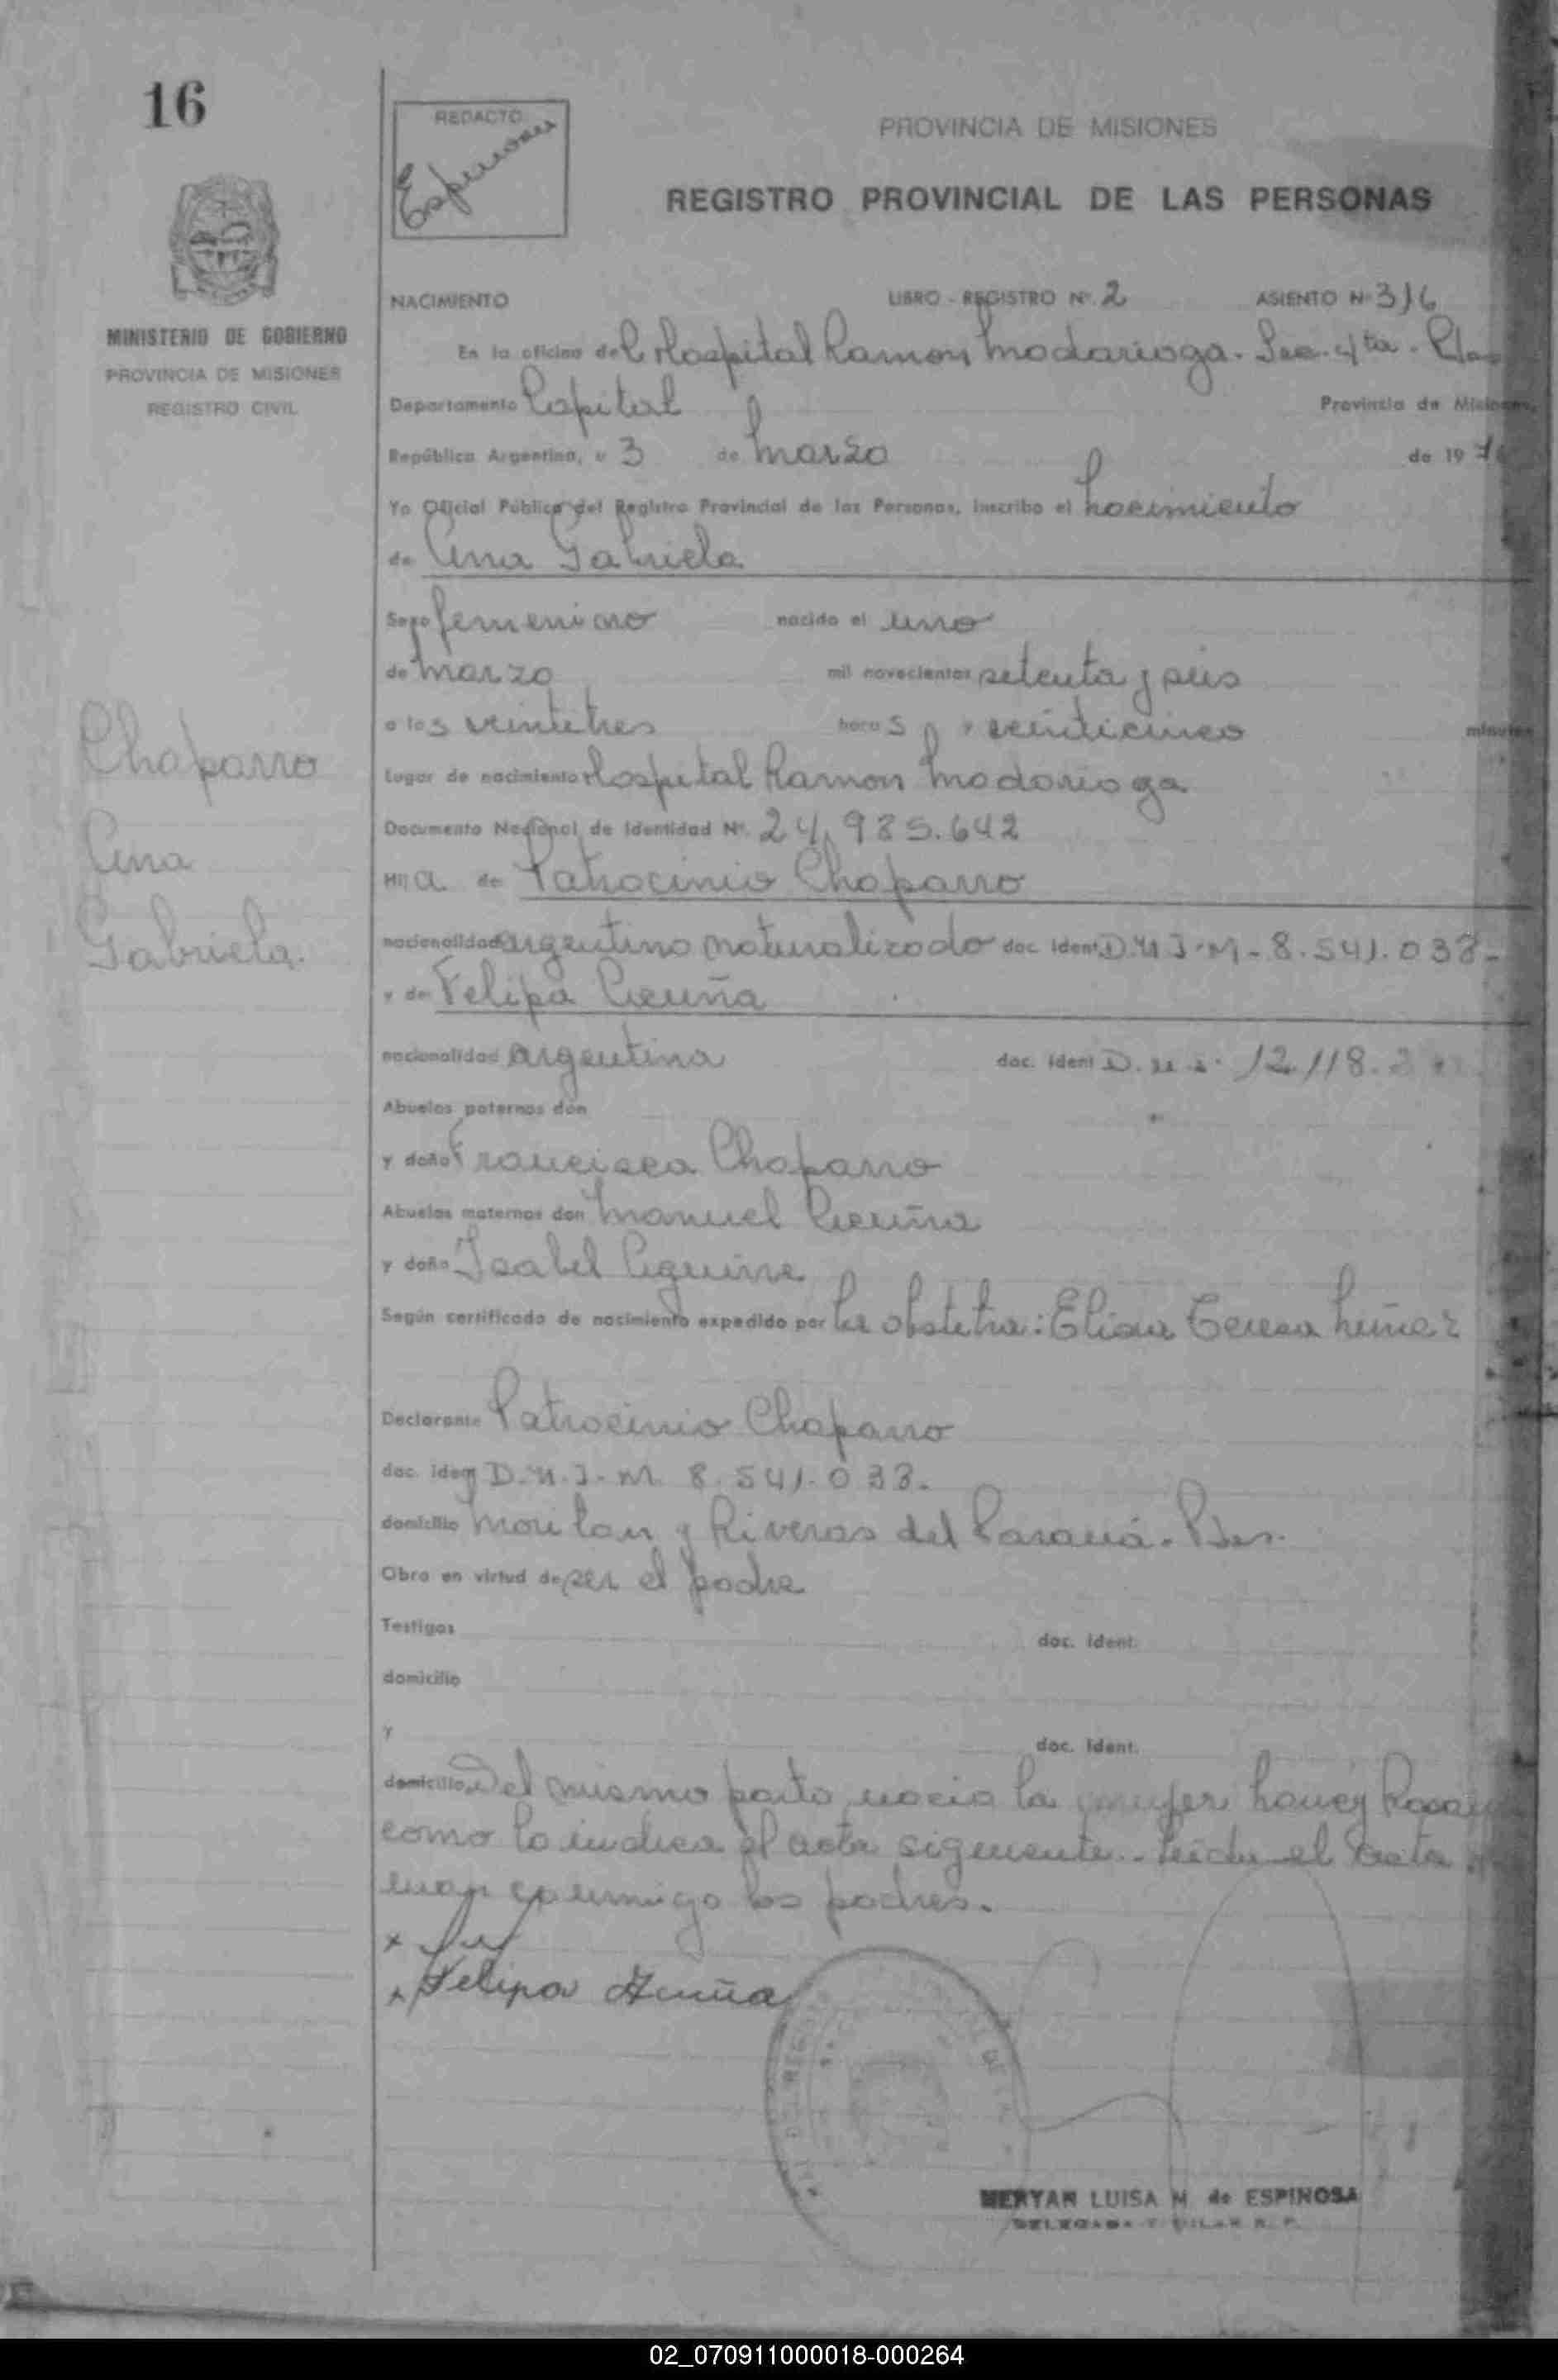 16
REDACTO
PROVINCIA DE MISIONES
REGISTRO PROVINCIAL DE LAS PERSONAS
MINISTERIO DE GOBIERNO
PROVINCIA DE MISIONES
REGISTRO CIVIL
Chaparro
Ana
Gabriela.
NACIMIENTO LIBRO - REGISTRO Nº 2 ASIENTO Nº 316
En la oficina del Hospital Ramon Madariaga. Sec. 4ta.
Departamento Capital Provincia de Misiones,
República Argentina, a 3 de marzo de 19
Yo Oficial Público del Registro Provincial de las Personas, inscribo el nacimiento
de Ana Gabriela
Sexo femenino nacido el uno
de marzo mil novecientos setenta y seis
a las veintitres horas y veinticinco minutos
Lugar de nacimiento Hospital Ramon Madariaga
Documento Nacional de Identidad Nº 24.985.642
Hija de Patrocinio Chaparro
nacionalidad argentino naturalizado doc. ident D.N.I.M-8.541.038-
y de Felipa Acuña
nacionalidad argentina doc. ident D.n.i. 12.118.
Abuelos paternos don
y doña Francisca Chaparro
Abuelos maternos don Manuel Acuña
y doña Isabel Aguirre
Según certificado de nacimiento expedido por la obstetra: Teresa Nuñez
Declarante Patrocinio Chaparro
doc. ident D.N.I.M. 8.541.038.
domicilio y Riveras del Paraná.
Obra en virtud de ser el padre
Testigos doc. ident.
domicilio
y doc. ident.
domicilio Del mismo parto nacio la mujer
como lo indica el acta siguiente. Leida el acta
conmigo los padres.
x
x Felipa Acuña
MERYAN LUISA M. de ESPINOSA
02_070911000018-000264